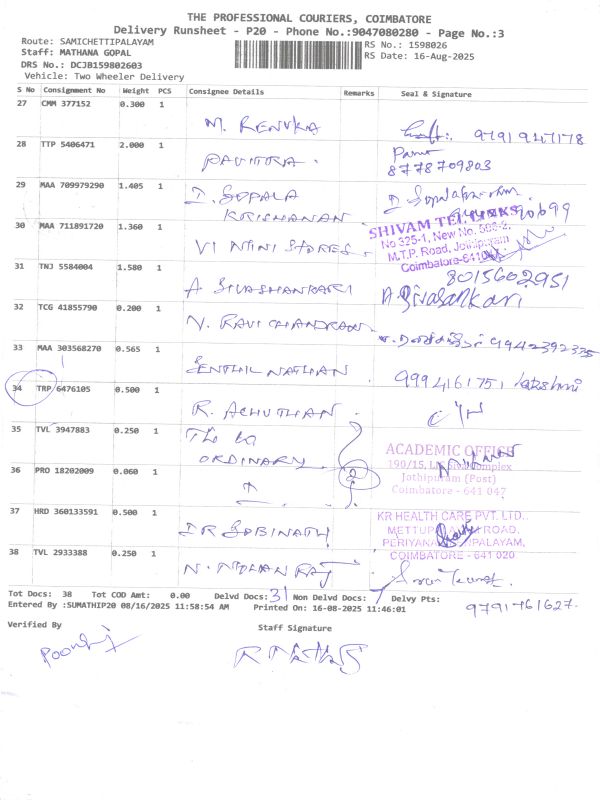 THE PROFESSIONAL COURIERS, COIMBATORE
Delivery Runsheet - P20 - Phone No.:9047080280 - Page No.:3
Route: SAMICHETTIPALAYAM
RS No.: 1598026
Staff: MATHANA GOPAL
RS Date: 16-Aug-2025
DRS No.: DCJB159802603
Vehicle: Two Wheeler Delivery
S No Consignment No Weight PCS Consignee Details Remarks Seal & Signature
27 CMM 377152 0.300 1
M. RENUKA 9791947178
28 TTP 5406471 2.000 1
PAVITRA. 8778709803
29 MAA 709979290 1.405 1
I. GOPALA
KRISHANAN
30 MAA 711891720 1.360 1
VI NINI STORES.
SHIVAM
No 325-1, New No.
M.T.P. Road,
Coimbatore
31 TNJ 5584004 1.580 1
8015602951
A SIVASHANKARI A. Sivasankari
32 TCG 41855790 0.200 1
N. RAVICHANDRAN 9942392335
33 MAA 303568270 0.565 1
SENTHIL NATHAN 9994161751 lakshmi
34 TRP 6476105 0.500 1
R. ACHUTHAN. C/H
35 TVL 3947883 0.250 1
ORDINARY
ACADEMIC OFFICE
190/15,
Jothipuram (Post)
Coimbatore - 641 047
36 PRO 18202009 0.060 1
2
37 HRD 360133591 0.500 1
DR GOBINATH
KR HEALTH CARE PVT. LTD.,
ROAD,
COIMBATORE - 641 020
38 TVL 2933388 0.250 1
N. MOHAN RAJ
Tot Docs: 38 Tot COD Amt: 0.00 Delvd Docs: 31 Non Delvd Docs: 7 Delvy Pts:
Entered By :SUMATHIP20 08/16/2025 11:58:54 AM Printed On: 16-08-2025 11:46:01
9791761627.
Verified By
Staff Signature